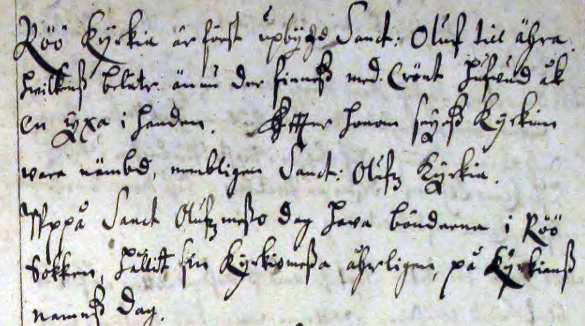 Röö Kyrkia är först upbygd Sanct: Oluf till ähra.
hwilkens beläte ännu der finnes med Crönt hufwud åk
en yxa i handen. Effter honom seyes Kyrkian
wara nämbd, nembligen Sanct: Olufz Kyrkia.
Uppå Sanct Olufzmesso dag hava bönderna i Röö
Sokken, hållitt sin Kyrkiomessa åhrligen, på Kyrkians
namns dag.